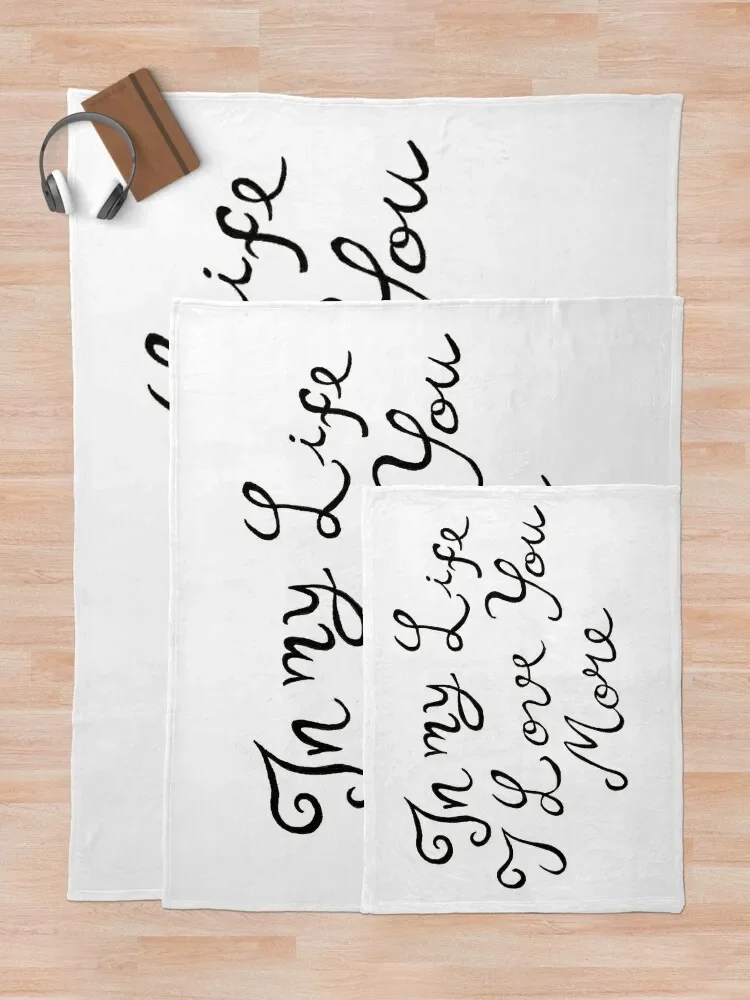 Life
You
In my Life
You
In my Life
I Love You
More